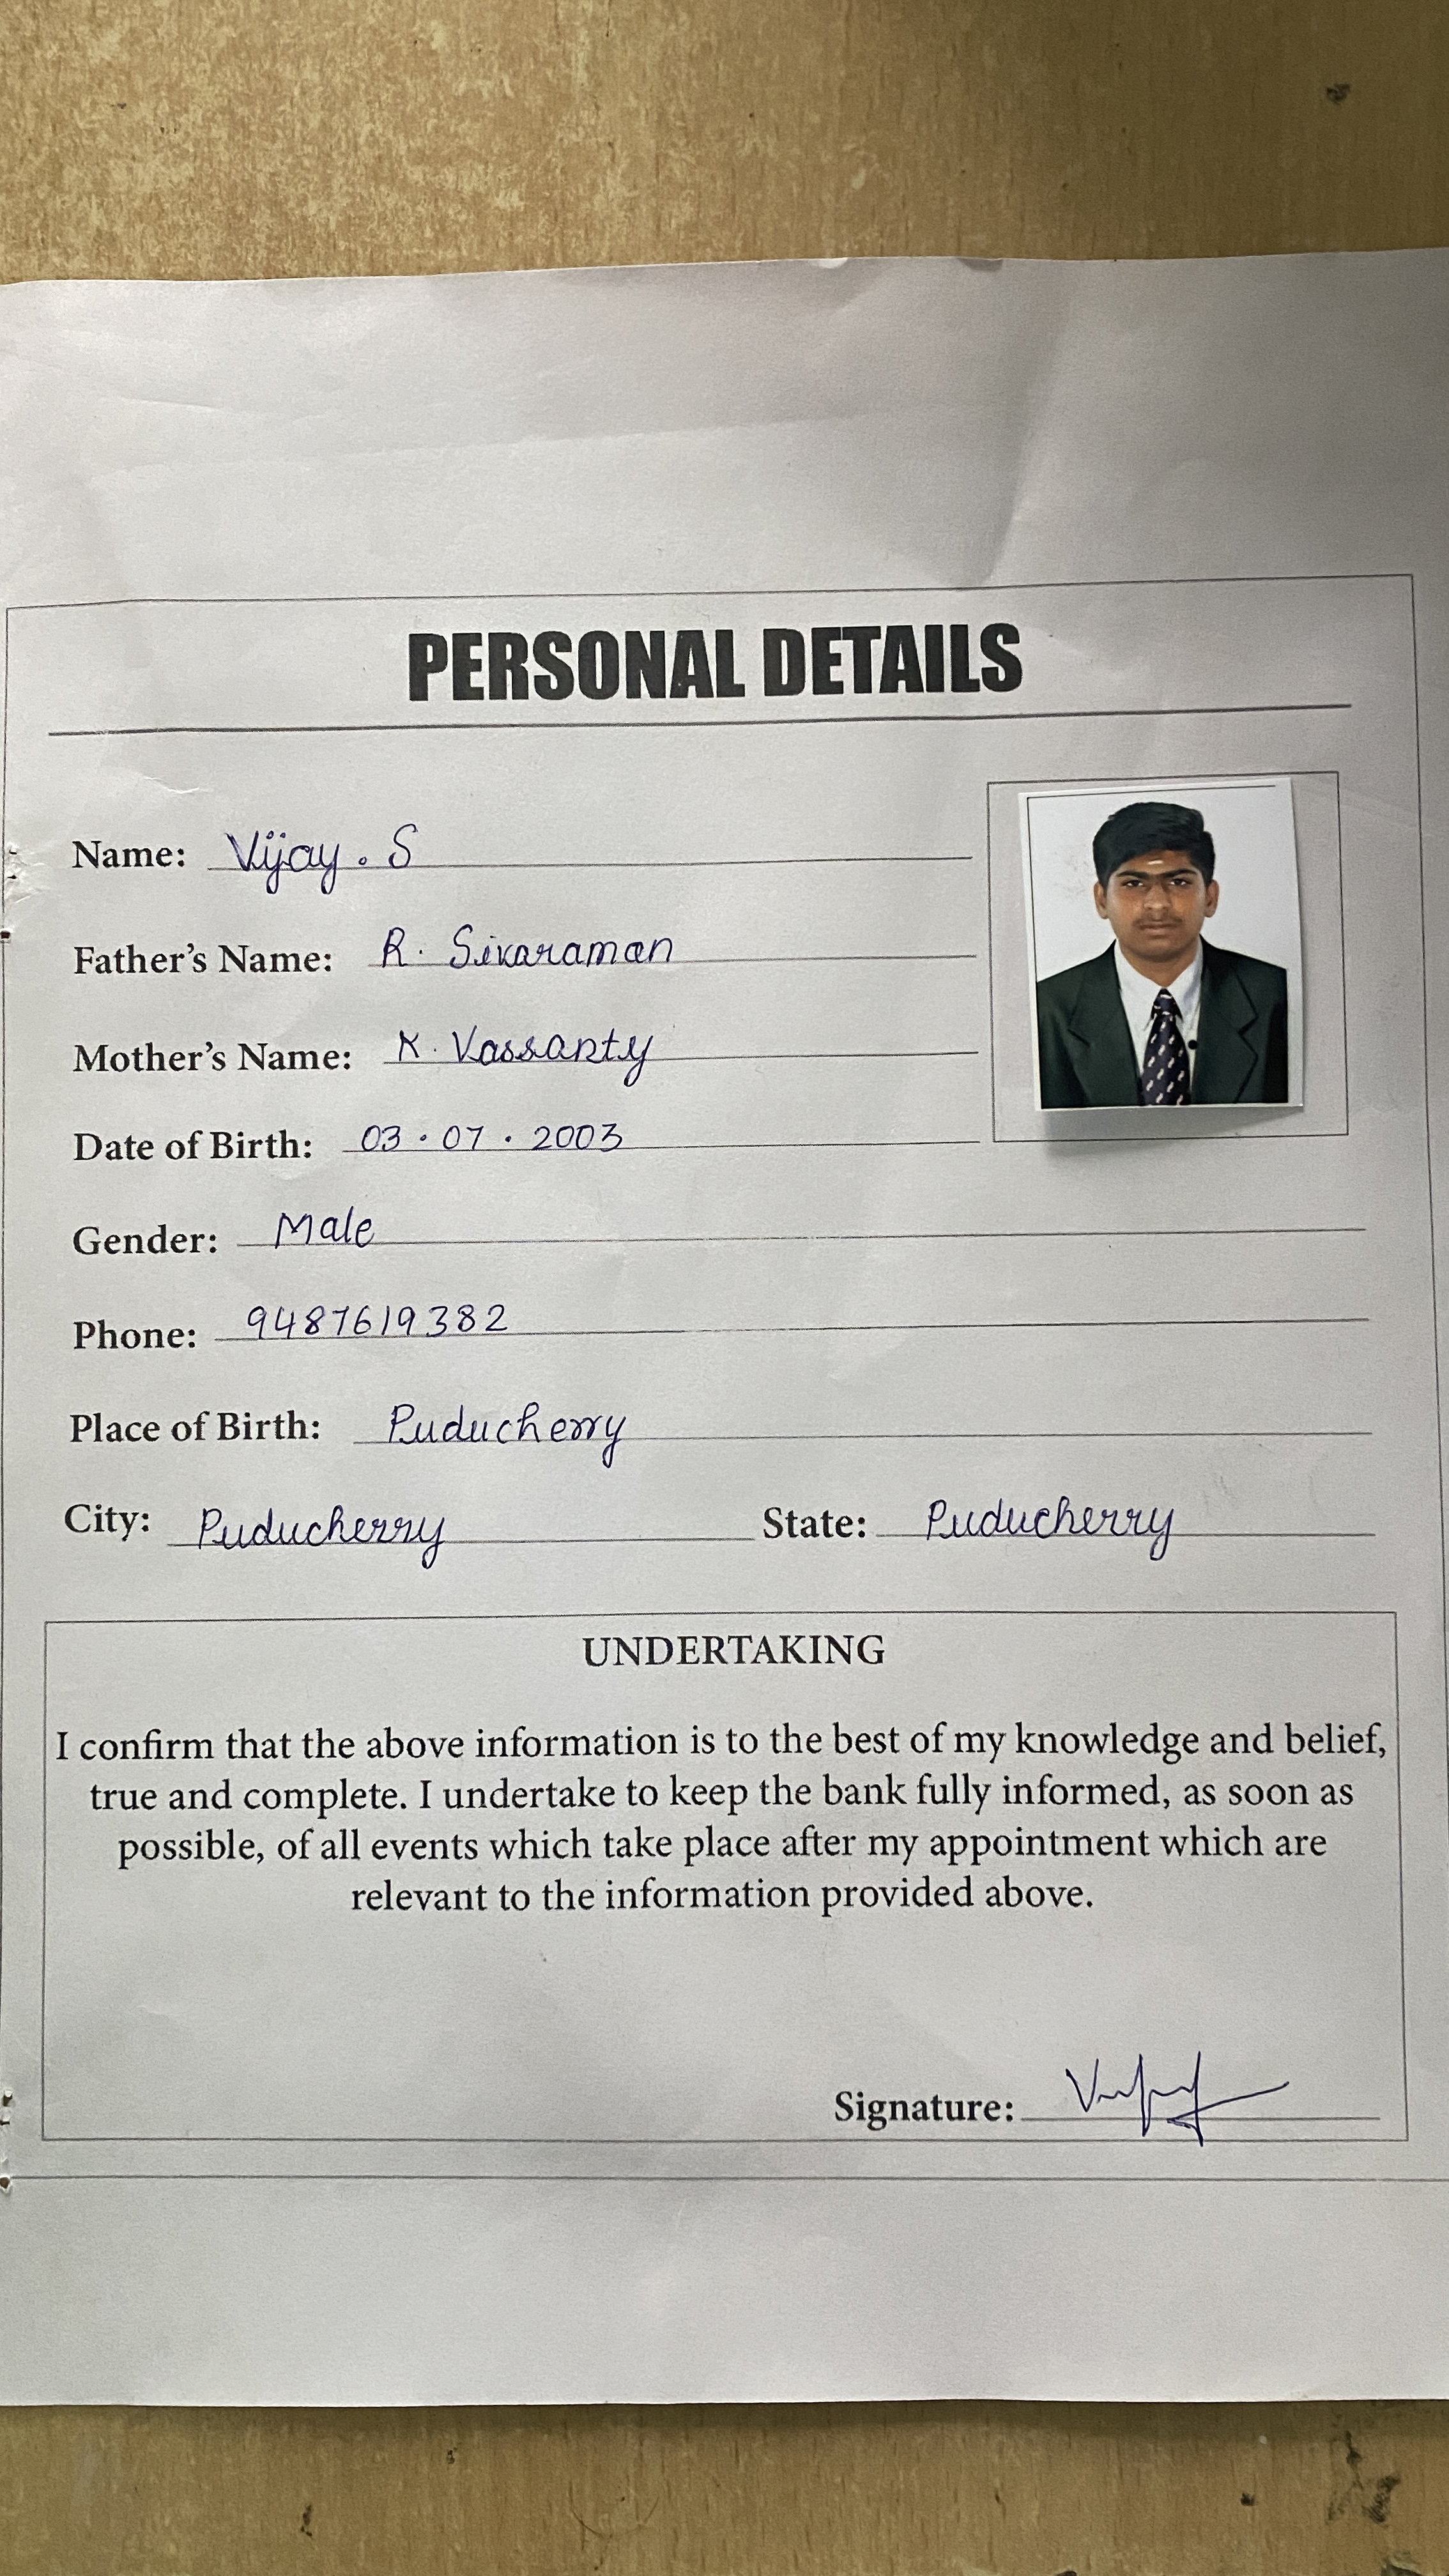 PERSONAL DETAILS
Name: Vijay . S
Father's Name: R. Sivaraman
Mother's Name: K. Vassanty
Date of Birth: 03 . 07 . 2003
Gender: Male
Phone: 9487619382
Place of Birth: Puducherry
City: Puducherry State: Puducherry
UNDERTAKING
I confirm that the above information is to the best of my knowledge and belief,
true and complete. I undertake to keep the bank fully informed, as soon as
possible, of all events which take place after my appointment which are
relevant to the information provided above.
Signature: